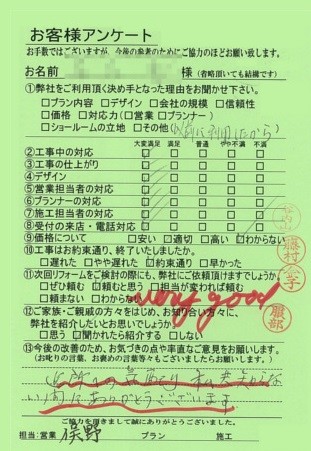 お客様アンケート
お手数ではございますが、今後の参考のためにご協力のほどお願い致します。
お名前 様 (省略頂いても結構です)
①弊社をご利用頂く決め手となった理由をお聞かせ下さい。
□プラン内容 □デザイン □会社の規模 □信頼性
□価格 □対応力(□営業 □プランナー)
□ショールームの立地 □その他(以前に利用したから)
大変満足 満足 普通 やや不満 不満
②工事中の対応 □ □ □ □ □
③工事の仕上がり □ □ □ □ □
④デザイン □ □ □ □ □
⑤営業担当者の対応 □ □ □ □ □
⑥プランナーの対応 □ □ □ □ □
⑦施工担当者の対応 □ □ □ □ □
⑧受付の来店・電話対応 □ □ □ □ □
⑨価格について □安い □適切 □高い □わからない
⑩工事はお約束通り、終了いたしましたか。
□遅れた □やや遅れた □約束通り □早かった
⑪次回リフォームをご検討の際にも、弊社にご依頼頂けますでしょうか。
□ぜひ頼む □頼むと思う □担当が変われば頼む
□頼まない □わからない
very good
⑫ご家族・ご親戚の方々をはじめ、お知り合い方々に、
弊社を紹介したいとお思いでしょうか
□思う □聞かれたら紹介する □しない
⑬今後の改善のため、お気づきの点や率直なご意見をお願いします。
(お叱りの言葉、お褒めの言葉等何でも結構です。)
ありがとうございます
ご協力を頂きまして誠にありがとうございました。
担当:営業 俣野 プラン 施工
藤村
服部